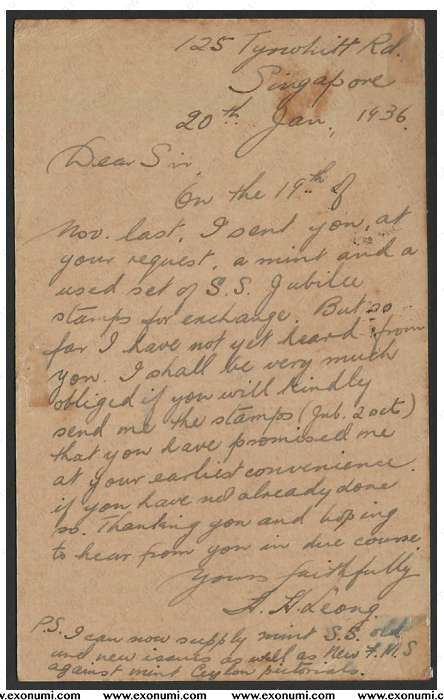 125 Tyrwhitt Rd.
Singapore
20th Jan, 1936.
Dear Sir,
On the 19th of
Nov. last, I sent you, at
your request, a mint and a
used set of S.S. Jubilee
stamps for exchange. But so
far I have not yet heard from
you. I shall be very much
obliged if you will kindly
send me the stamps (Jub. 2 sets)
that you have promised me
at your earliest convenience
if you have not already done
so. Thanking you and hoping
to hear from you in due course
Yours faithfully,
A. H. Leong.
P.S. I can now supply mint S.S. old
and new issues as well as New F.M.S
against mint Ceylon pictorials.
www.exonumi.com www.exonumi.com www.exonumi.com www.exonumi.com